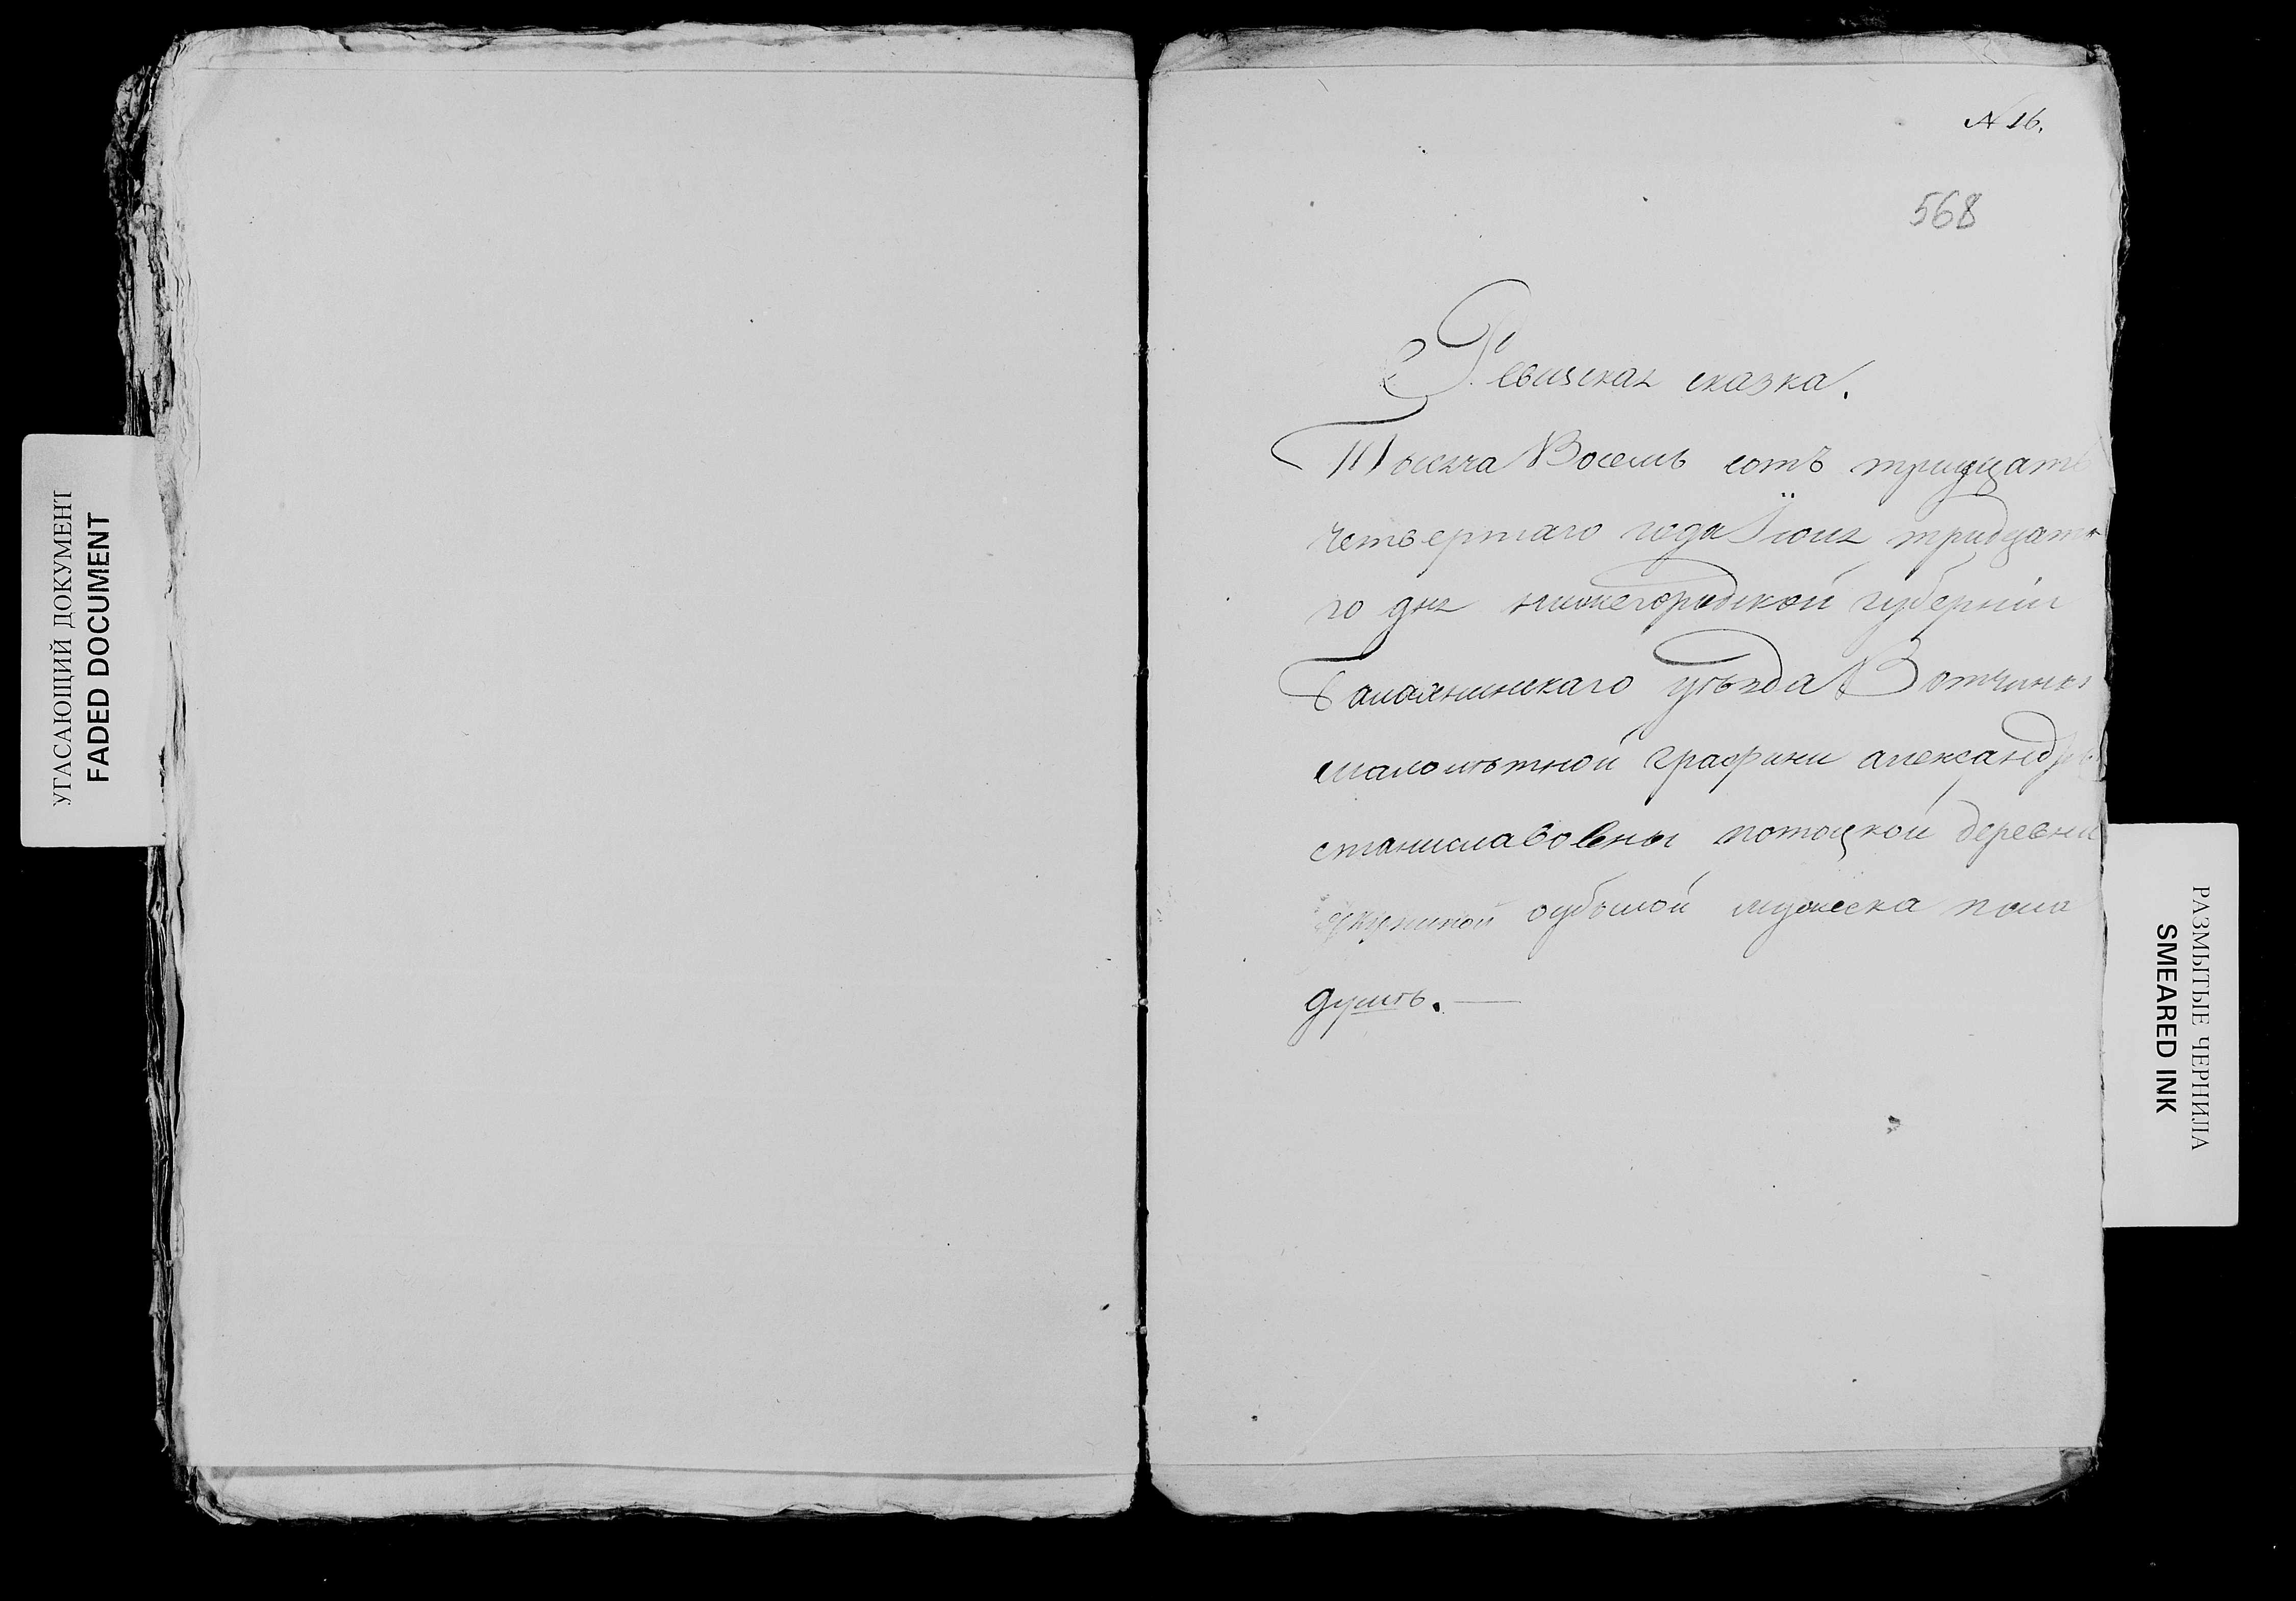 УГАСАЮЩИЙ ДОКУМЕНТ
FADED DOCUMENT
№ 16.
568
Ревизская сказка.
Тысяча Восемь сотъ тритцать
четвертаго года Їюня тридцата
го дня нижегородской губерніи
Балахнинскаго уѣзда Вотчины
малолѣтной графини александры
станиславовны потоцкой деревни
оубылой мужеска пола
душѣ. —
РАЗМЫТЫЕ ЧЕРНИЛА
SMEARED INK